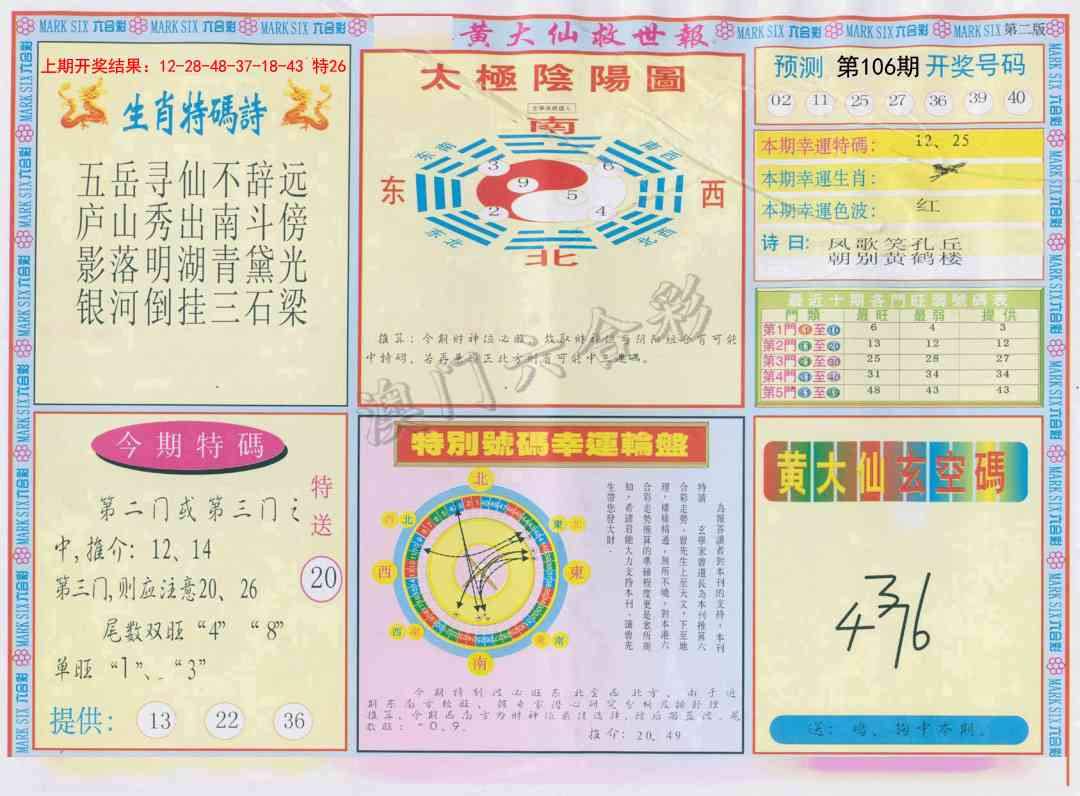 MARK SIX 六合彩 MARK SIX 六合彩 MARK SIX 六合彩
黄大仙救世報
MARK SIX 六合彩 MARK SIX 六合彩 MARK SIX 第二版
上期开奖结果：12-28-48-37-18-43 特26
生肖特碼詩
五岳寻仙不辞远
庐山秀出南斗傍
影落明湖青黛光
银河倒挂三石梁
太極陰陽圖
南
东南
南西
东
西
3
6
9
5
2
4
东北
西北
北
推算：今期财神位必旺，故取财神位与阴阳组合有可能
中特码，若再兼顾正北方则有可能中三连码。
预测 第106期 开奖号码
02 11 25 27 36 39 40
本期幸運特碼： 12、25
本期幸運生肖：
本期幸運色波： 红
诗曰：凤歌笑孔丘
朝别黄鹤楼
最近十期各門旺弱號碼表
門類 最旺 最弱 提供
第1門 1至10 6 4 3
第2門 11至20 13 12 12
第3門 21至30 25 28 27
第4門 31至40 31 34 34
第5門 至 48 43 43
今期特碼
第二门或第三门之
中,推介：12、14
第三门,则应注意20、26
尾数双旺“4” “8”
单旺 “1”、“3”
特送
20
提供： 13 22 36
特別號碼幸運輪盤
北
西北
東北
西
東
西南
東南
南
為報答讀者對本刊的支持，本刊
特請 玄學家曾道長為本刊推算六
合彩走勢，曾先生上至天文，下至地
理，樣樣精通，無所不曉，對本港六
合彩走勢推算的準確程度更是眾所周
知，希諸君能大力支持本刊，讓曾先
生帶您發大財．
推介：20、49
黄大仙玄空碼
4376
送：鸡、狗中本期。
澳门六合彩